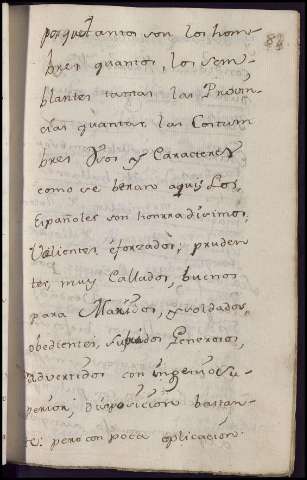 porque tantos son los hom-
bres quantos, los sem-
blantes tantas las Provin-
cias quantas, las Costum
bres Usos y Caracteres
como se beran aqui, Los,
Españoles son honrradisimos,
Valientes, esforzados, pruden
tes, muy Callados, buenos
para Maridos, y soldados,
obedientes, Generosos,
advertidos con ingenio su-
perior, Disposicion bastan-
te: pero con poca aplicacion.